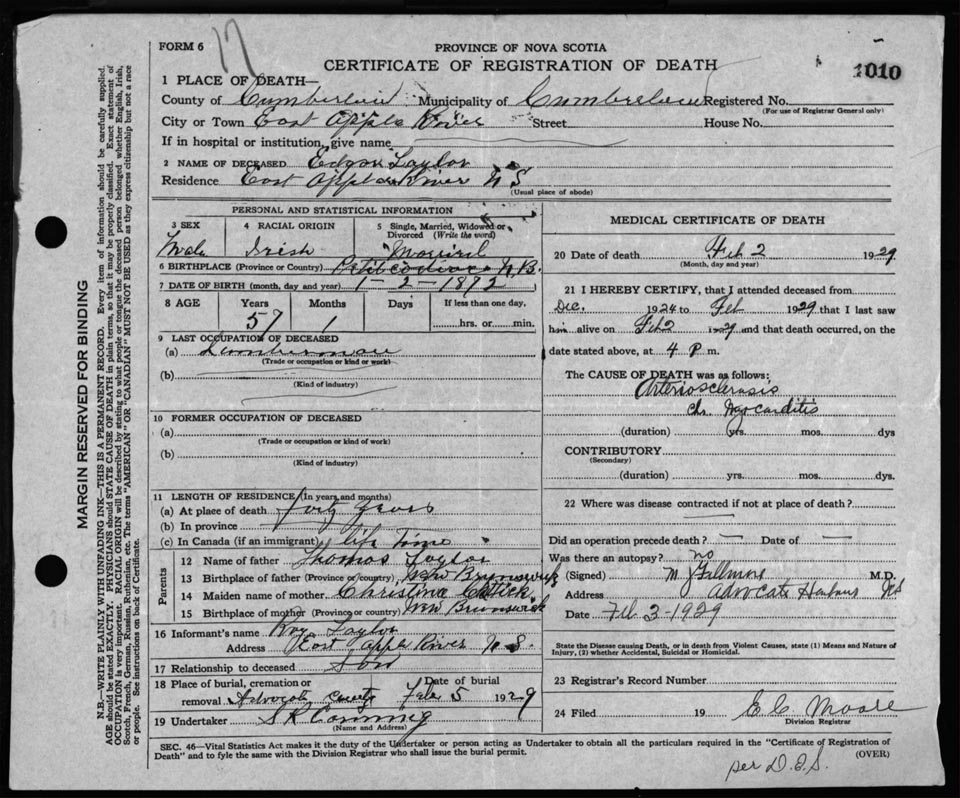 FORM 6
17
PROVINCE OF NOVA SCOTIA
CERTIFICATE OF REGISTRATION OF DEATH
1010
1 PLACE OF DEATH—
County of Cumberland Municipality of Cumberland Registered No.
(For use of Registrar General only)
City or Town East Apple River Street House No.
If in hospital or institution, give name
2 NAME OF DECEASED Edgar Taylor
Residence East Apple River N S
(Usual place of abode)
PERSONAL AND STATISTICAL INFORMATION
3 SEX 4 RACIAL ORIGIN 5 Single, Married, Widowed or Divorced (Write the word)
Male Irish Married
6 BIRTHPLACE (Province or Country) Petitcodiac N.B.
7 DATE OF BIRTH (month, day and year) 1-2-1872
8 AGE Years Months Days If less than one day,
57 1 hrs. or min.
9 LAST OCCUPATION OF DECEASED
(a) Lumberman
(Trade or occupation or kind or work)
(b)
(Kind of industry)
10 FORMER OCCUPATION OF DECEASED
(a)
(Trade or occupation or kind of work)
(b)
(Kind of industry)
11 LENGTH OF RESIDENCE (In years and months)
(a) At place of death forty years
(b) In province
(c) In Canada (if an immigrant) life Time
Parents
12 Name of father Thomas Taylor
13 Birthplace of father (Province or country) New Brunswick
14 Maiden name of mother Christina
15 Birthplace of mother (Province or country) New Brunswick
16 Informant's name Roy Taylor
Address East Apple River N. S.
17 Relationship to deceased Son
18 Place of burial, cremation or removal Advocate Date of burial Feb 5 1929
19 Undertaker
(Name and Address)
MEDICAL CERTIFICATE OF DEATH
20 Date of death Feb 2 1929
(Month, day and year)
21 I HEREBY CERTIFY, that I attended deceased from
Dec. 1924 to Feb 1929 that I last saw
him alive on Feb 2 1929 and that death occurred, on the
date stated above, at 4 p m.
The CAUSE OF DEATH was as follows:
Arteriosclerosis
Ch. Myocarditis
(duration) yrs. mos. dys
CONTRIBUTORY
(Secondary)
(duration) yrs. mos. dys
22 Where was disease contracted if not at place of death?
Did an operation precede death? — Date of —
Was there an autopsy? no
(Signed) M Fillmore M.D.
Address Advocate Harbour NS
Date Feb 3-1929
State the Disease causing Death, or in death from Violent Causes, state (1) Means and Nature of Injury, (2) whether Accidental, Suicidal or Homicidal.
23 Registrar's Record Number
24 Filed 19 E C Moore
Division Registrar
SEC. 46—Vital Statistics Act makes it the duty of the Undertaker or person acting as Undertaker to obtain all the particulars required in the "Certificate of Registration of
Death" and to fyle the same with the Division Registrar who shall issue the burial permit. (OVER)
per D.E.S.
MARGIN RESERVED FOR BINDING
N.B.—WRITE PLAINLY WITH UNFADING INK—THIS IS A PERMANENT RECORD. Every item of information should be carefully supplied.
AGE should be stated EXACTLY. PHYSICIANS should STATE CAUSE OF DEATH in plain terms, so that it may be properly classified. Exact statement of
OCCUPATION is very important. RACIAL ORIGIN will be described by stating to what people or tongue the deceased person belonged whether English, Irish,
Scotch, French, German, Russian, Ruthenian, etc. The terms "AMERICAN" OR "CANADIAN" MUST NOT BE USED as they express citizenship but not a race
or people. See instructions on back of Certificate.